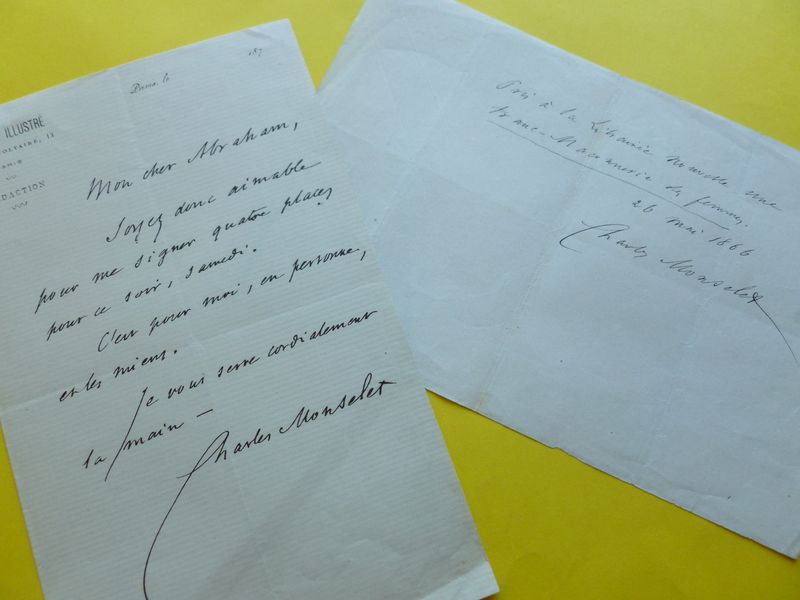 ILLUSTRÉ
OLTAIRE, 13
DACTION
Paris, le 187
Mon cher Abraham,
Soyez donc aimable
pour me signer quatre places
pour ce soir, samedi.
C'est pour moi, en personne,
et les miens.
Je vous serre cordialement
la main —
Charles Monselet
Pris à la Librairie nouvelle une
Franc-Maçonnerie des femmes.
26 mai 1866
Charles Monselet